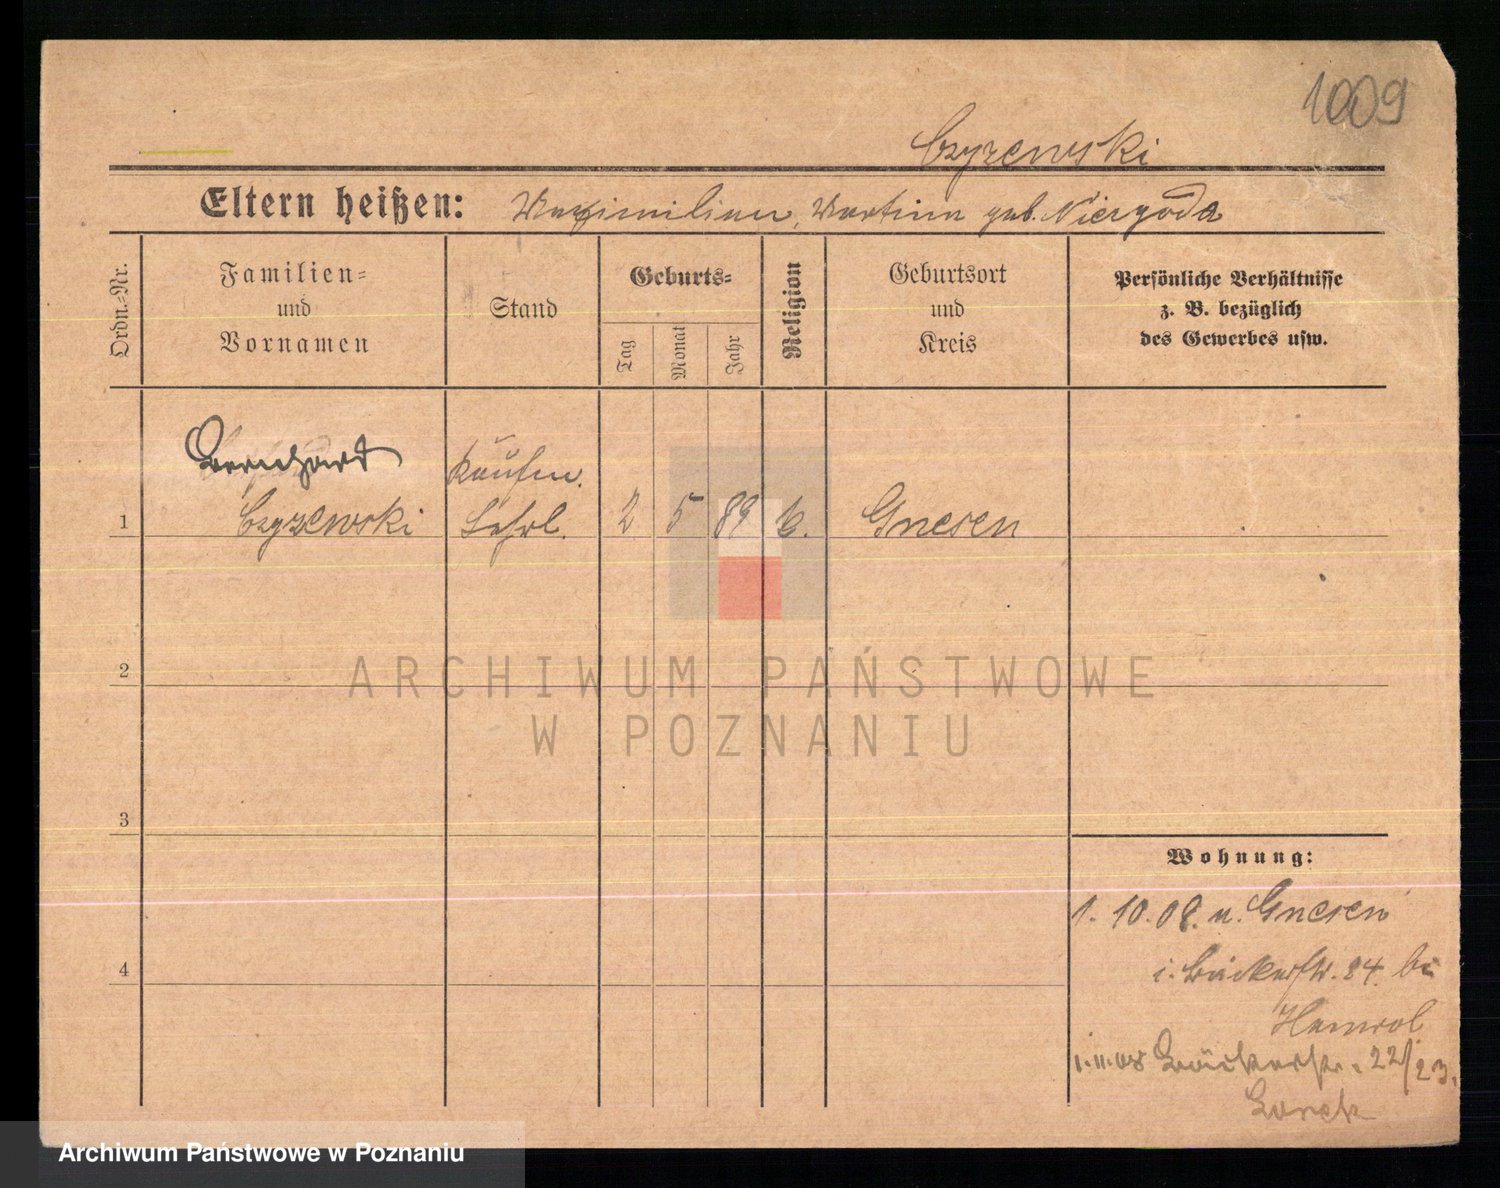 1009
Czyzewski
Eltern heißen: Maximilian, Martina geb. Niezgoda
Ordn.-Nr.
Familien-
und
Vornamen
Stand
Geburts-
Tag
Monat
Jahr
Religion
Geburtsort
und
Kreis
Persönliche Verhältnisse
z. B. bezüglich
des Gewerbes usw.
Bernhard
Kaufm.
1 Czyzewski Lehrl. 2 5 89 k. Gnesen
2
3
4
Wohnung:
1. 10. 08. n. Gnesen
i. Bäckerstr. 24 bei
1.11.08 Bäckerstr. 22/23.
ARCHIWUM PAŃSTWOWE
W POZNANIU
Archiwum Państwowe w Poznaniu